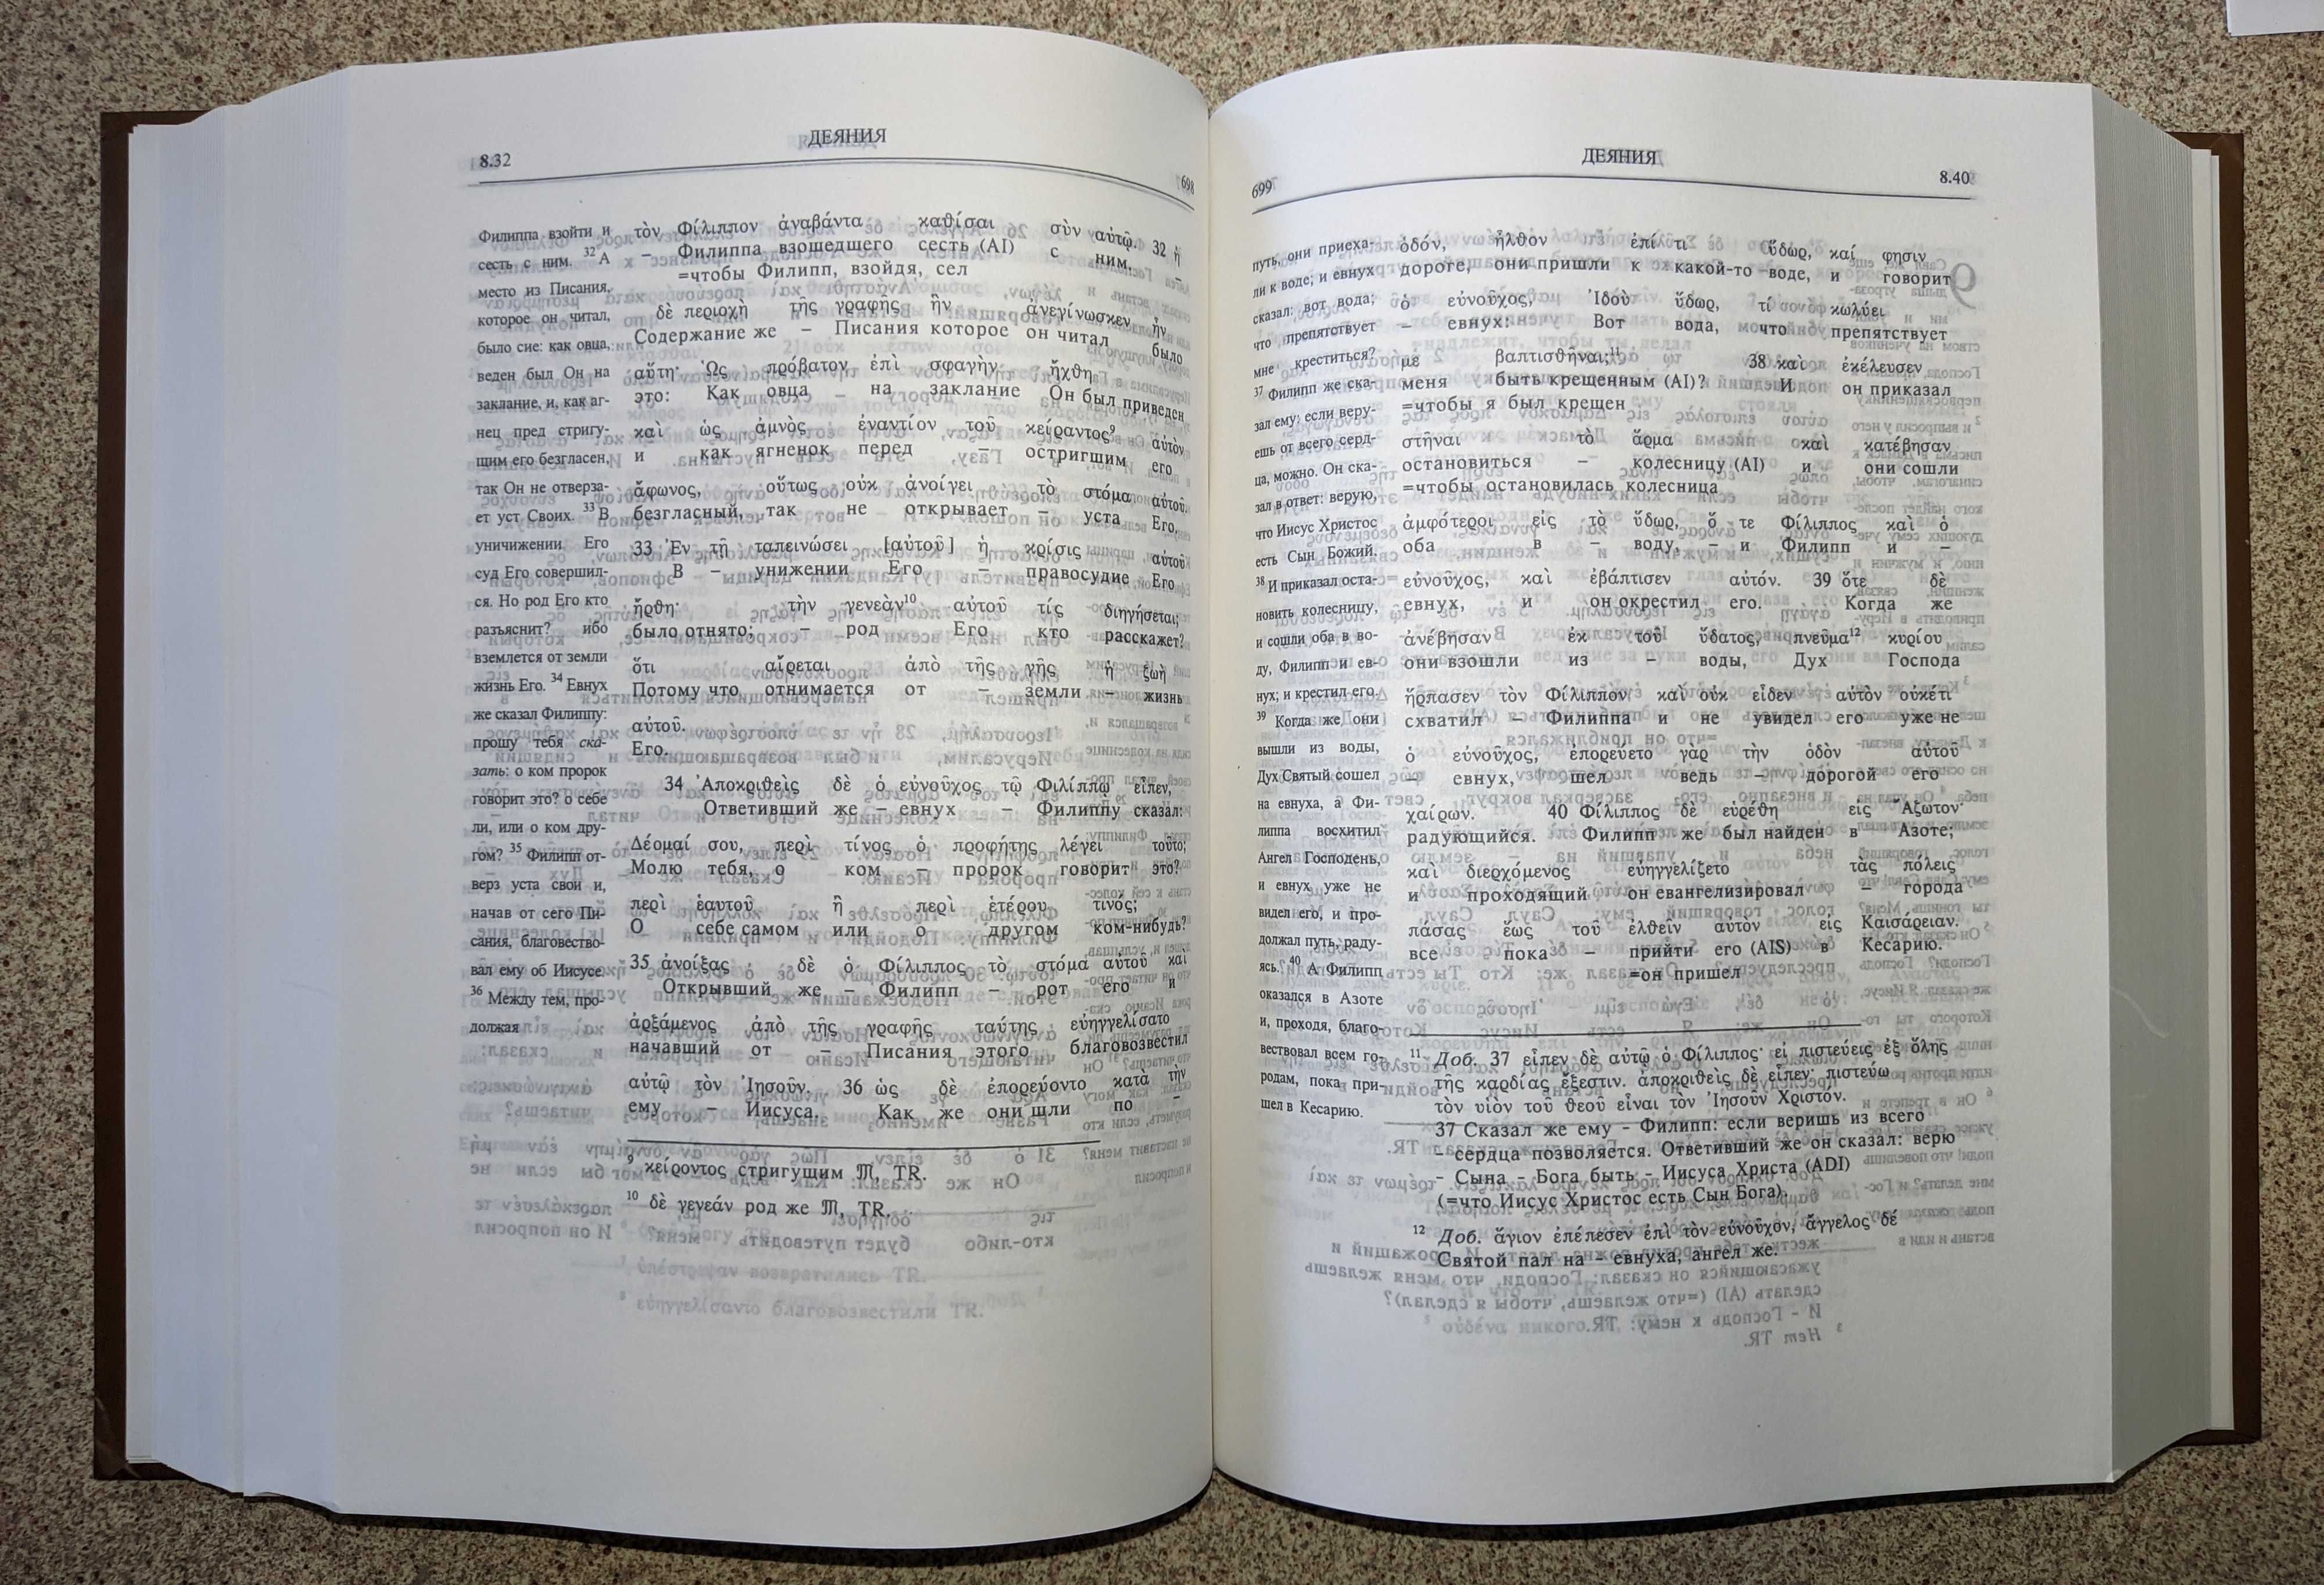 ДЕЯНИЯ
8.32
698
Филиппа взойти и
сесть с ним. 32 А
место из Писания,
которое он читал,
было сие: как овца,
веден был Он на
заклание, и, как аг-
нец пред стригу-
щим его безгласен,
так Он не отверза-
ет уст Своих. 33 В
уничижении Его
суд Его совершил-
ся. Но род Его кто
разъяснит? ибо
вземлется от земли
жизнь Его. 34 Евнух
же сказал Филиппу:
прошу тебя ска-
зать: о ком пророк
говорит это? о себе
ли, или о ком дру-
гом? 35 Филипп от-
верз уста свои и,
начав от сего Пи-
сания, благовество-
вал ему об Иисусе.
36 Между тем, про-
должая
τὸν Φίλιππον ἀναβάντα καθίσαι σὺν αὐτῷ. 32 ἡ
– Филиппа взошедшего сесть (AI) с ним. –
=чтобы Филипп, взойдя, сел
δὲ περιοχὴ τῆς γραφῆς ἣν ἀνεγίνωσκεν ἦν
Содержание же – Писания которое он читал было
αὕτη· Ὡς πρόβατον ἐπὶ σφαγὴν ἤχθη
это: Как овца на заклание Он был приведен
καὶ ὡς ἀμνὸς ἐναντίον τοῦ κείραντος9 αὐτὸν
и как ягненок перед – остригшим его
ἄφωνος, οὕτως οὐκ ἀνοίγει τὸ στόμα αὐτοῦ.
безгласный, так не открывает – уста Его.
33 Ἐν τῇ ταπεινώσει [αὐτοῦ] ἡ κρίσις αὐτοῦ
В – унижении Его – правосудие Его
ἤρθη· τὴν γενεὰν10 αὐτοῦ τίς διηγήσεται;
было отнято; – род Его кто расскажет?
ὅτι αἴρεται ἀπὸ τῆς γῆς ἡ ζωὴ
Потому что отнимается от – земли – жизнь
αὐτοῦ.
Его.
34 Ἀποκριθεὶς δὲ ὁ εὐνοῦχος τῷ Φιλίππῳ εἶπεν,
Ответивший же – евнух – Филиппу сказал:
Δέομαί σου, περὶ τίνος ὁ προφήτης λέγει τοῦτο;
Молю тебя, о ком – пророк говорит это?
περὶ ἑαυτοῦ ἢ περὶ ἑτέρου τινός;
О себе самом или о другом ком-нибудь?
35 ἀνοίξας δὲ ὁ Φίλιππος τὸ στόμα αὐτοῦ καὶ
Открывший же – Филипп – рот его и
ἀρξάμενος ἀπὸ τῆς γραφῆς ταύτης εὐηγγελίσατο
начавший от – Писания этого благовозвестил
αὐτῷ τὸν Ἰησοῦν. 36 ὡς δὲ ἐπορεύοντο κατὰ τὴν
ему – Иисуса. Как же они шли по –
9 κείροντος стригущим 𝔐, TR.
10 δὲ γενεάν род же 𝔐, TR.
ДЕЯНИЯ
699
8.40
путь, они приеха-
ли к воде; и евнух
сказал: вот вода;
что препятствует
мне креститься?
37 Филипп же ска-
зал ему: если веру-
ешь от всего серд-
ца, можно. Он ска-
зал в ответ: верую,
что Иисус Христос
есть Сын Божий.
38 И приказал оста-
новить колесницу,
и сошли оба в во-
ду, Филипп и ев-
нух; и крестил его.
39 Когда же они
вышли из воды,
Дух Святый сошел
на евнуха, а Фи-
липпа восхитил
Ангел Господень,
и евнух уже не
видел его, и про-
должал путь, раду-
ясь. 40 А Филипп
оказался в Азоте
и, проходя, благо-
вествовал всем го-
родам, пока при-
шел в Кесарию.
ὁδόν, ἦλθον ἐπί τι ὕδωρ, καί φησιν
дороге, они пришли к какой-то воде, и говорит
ὁ εὐνοῦχος, Ἰδοὺ ὕδωρ, τί κωλύει
– евнух: Вот вода, что препятствует
με βαπτισθῆναι;11 38 καὶ ἐκέλευσεν
меня быть крещенным (AI)? И он приказал
=чтобы я был крещен
στῆναι τὸ ἅρμα καὶ κατέβησαν
остановиться – колесницу (AI) и они сошли
=чтобы остановилась колесница
ἀμφότεροι εἰς τὸ ὕδωρ, ὅ τε Φίλιππος καὶ ὁ
оба в – воду, – и Филипп и –
εὐνοῦχος, καὶ ἐβάπτισεν αὐτόν. 39 ὅτε δὲ
евнух, и он окрестил его. Когда же
ἀνέβησαν ἐκ τοῦ ὕδατος, πνεῦμα12 κυρίου
они взошли из – воды, Дух Господа
ἥρπασεν τὸν Φίλιππον καὶ οὐκ εἶδεν αὐτὸν οὐκέτι
схватил – Филиппа и не увидел его уже не
ὁ εὐνοῦχος, ἐπορεύετο γὰρ τὴν ὁδὸν αὐτοῦ
– евнух, шел ведь – дорогой его
χαίρων. 40 Φίλιππος δὲ εὑρέθη εἰς Ἄζωτον·
радующийся. Филипп же был найден в Азоте;
καὶ διερχόμενος εὐηγγελίζετο τὰς πόλεις
и проходящий он евангелизировал – города
πάσας ἕως τοῦ ἐλθεῖν αὐτὸν εἰς Καισάρειαν.
все пока – прийти его (AIS) в Кесарию.
=он пришел
11 Доб. 37 εἶπεν δὲ αὐτῷ ὁ Φίλιππος· εἰ πιστεύεις ἐξ ὅλης
τῆς καρδίας ἔξεστιν. ἀποκριθεὶς δὲ εἶπεν· πιστεύω
τὸν υἱὸν τοῦ θεοῦ εἶναι τὸν Ἰησοῦν Χριστόν.
37 Сказал же ему - Филипп: если веришь из всего
- сердца позволяется. Ответивший же он сказал: верю
- Сына - Бога быть - Иисуса Христа (ADI)
(=что Иисус Христос есть Сын Бога).
12 Доб. ἅγιον ἐπέπεσεν ἐπὶ τὸν εὐνοῦχον, ἄγγελος δέ
Святой пал на - евнуха, ангел же.